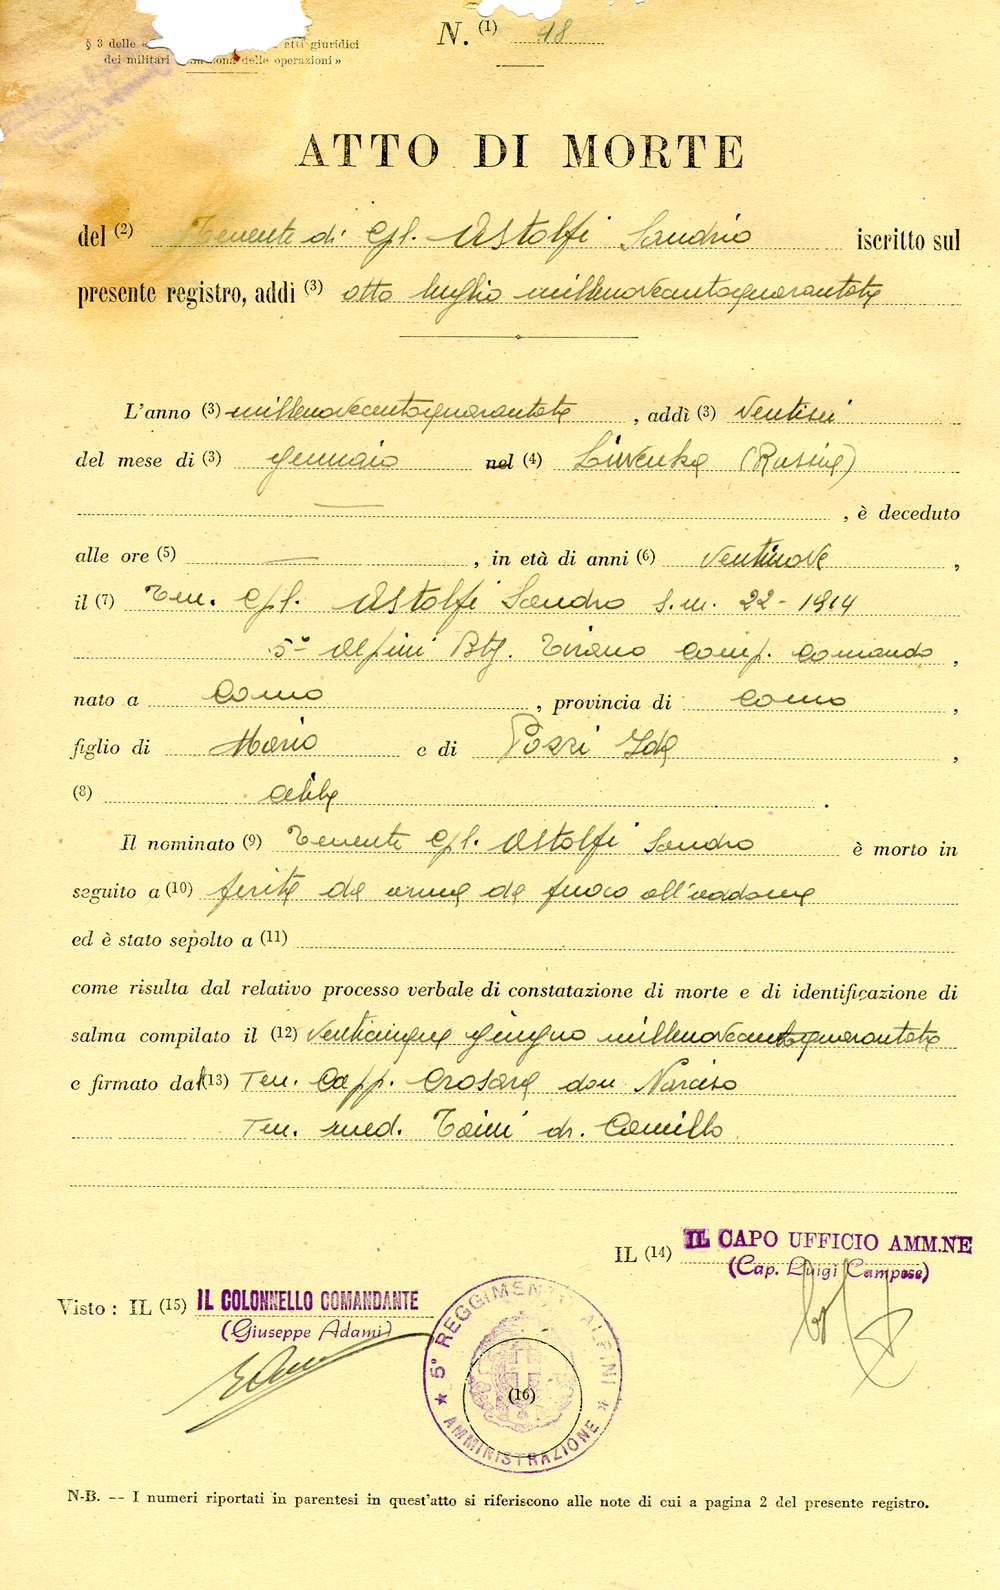 N. (1) 18
§ 3 delle « atti giuridici
dei militari in zona delle operazioni »
ATTO DI MORTE
del (2) Tenente di Cpl. Astolfi Sandro iscritto sul
presente registro, addì (3) otto luglio millenovecentoquarantatre
L'anno (3) millenovecentoquarantatre, addì (3) ventisei
del mese di (3) gennaio nel (4) Liwenka (Russia)
, è deceduto
alle ore (5) — , in età di anni (6) ventinove ,
il (7) Ten. Cpl. Astolfi Sandro s.m. 22-1914
5° Alpini Btg. Tirano Comp. Comando ,
nato a Como , provincia di Como ,
figlio di Mario e di Pozzi Ida ,
(8) .
Il nominato (9) Tenente Cpl. Astolfi Sandro è morto in
seguito a (10) ferita da arma da fuoco all'addome
ed è stato sepolto a (11)
come risulta dal relativo processo verbale di constatazione di morte e di identificazione di
salma compilato il (12) venticinque giugno millenovecentoquarantatre
e firmato dal (13) Ten. Capp. Crosara don Narciso
Ten. med. Taini dr. Camillo
IL (14) IL CAPO UFFICIO AMM.NE
(Cap. Luigi Campese)
Visto : IL (15) IL COLONNELLO COMANDANTE
(Giuseppe Adami)
5° REGGIMENTO ALPINI
(16)
★ AMMINISTRAZIONE ★
N-B. — I numeri riportati in parentesi in quest'atto si riferiscono alle note di cui a pagina 2 del presente registro.